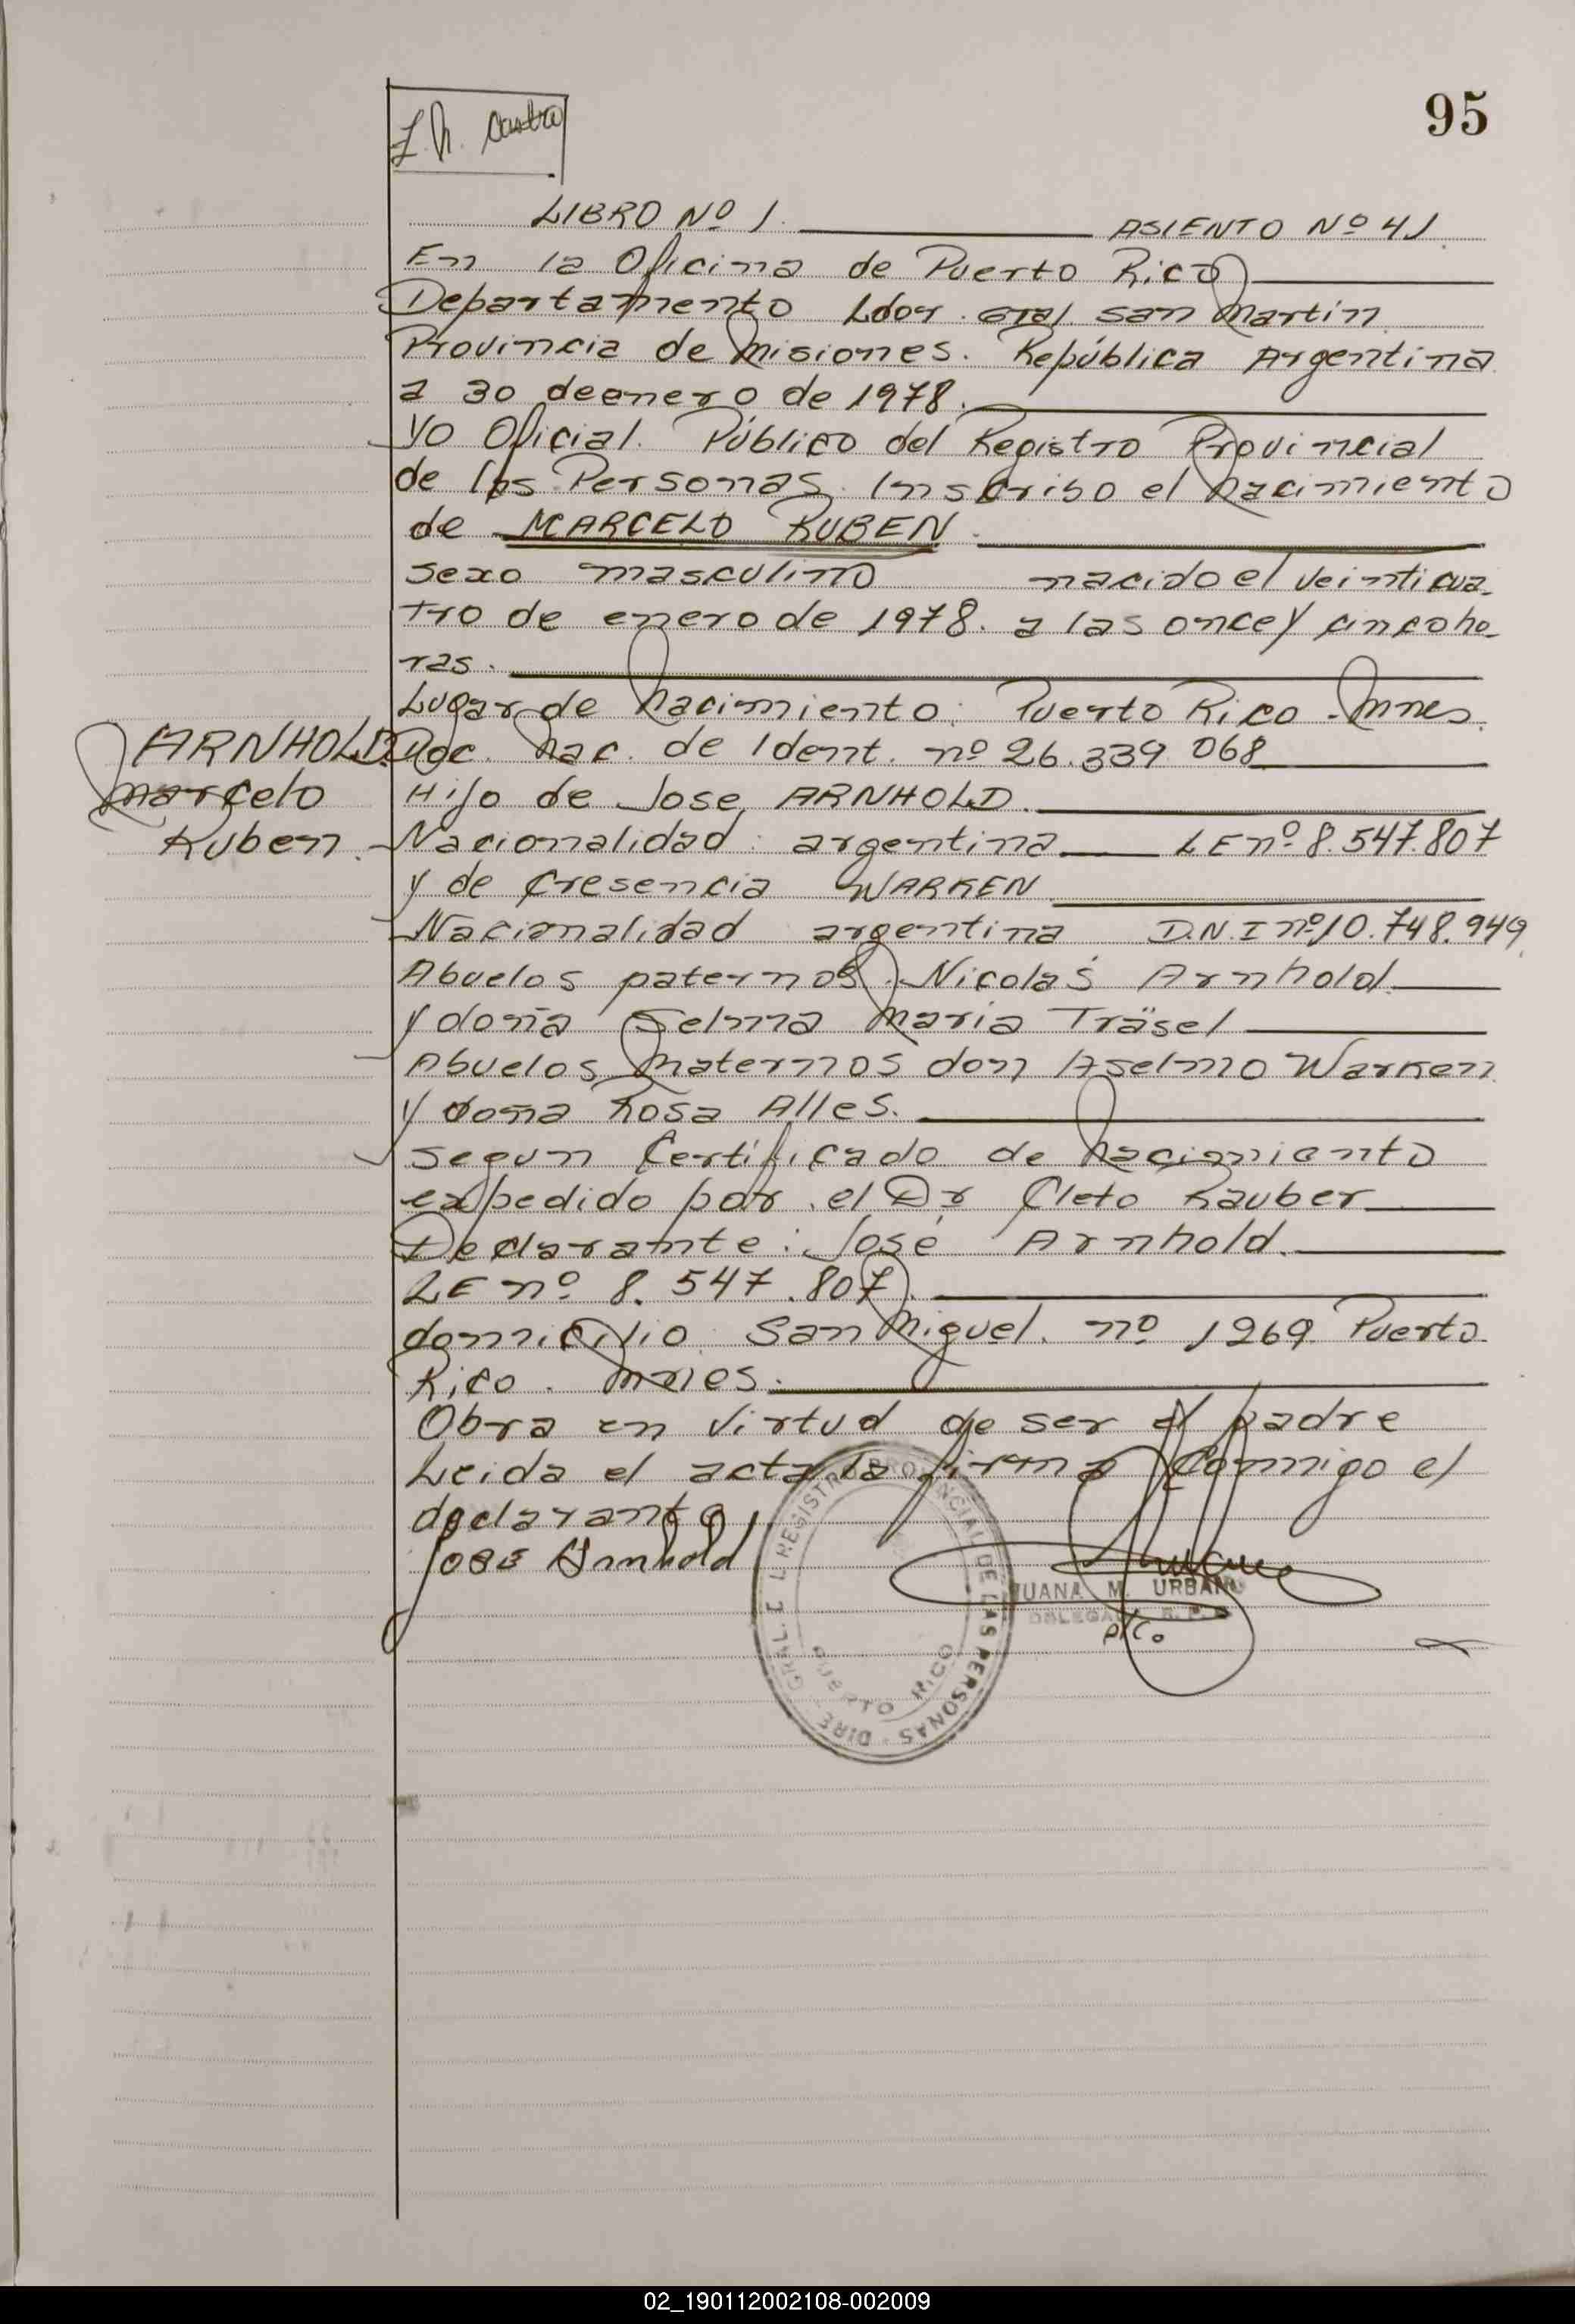 95
Castro
LIBRO Nº 1. ASIENTO Nº 41.
En la Oficina de Puerto Rico
Departamento Ldor. Gral. San Martín
Provincia de Misiones. República Argentina
a 30 de enero de 1978.
Yo Oficial. Público del Registro Provincial
de las Personas. Inscribo el Nacimiento
de MARCELO RUBEN.
sexo masculino nacido el veinticua-
tro de enero de 1978. a las once y cinco ho-
ras.
Lugar de Nacimiento: Puerto Rico. Mnes.
ARNHOLD. Doc. Nac. de Ident. nº 26.339.068
Marcelo Hijo de Jose ARNHOLD.
Ruben. Nacionalidad: argentina LE nº 8.547.807
y de Cresencia WARKEN
Nacionalidad argentina D.N.I nº 10.748.949.
Abuelos paternos. Nicolás Arnhold.
y doña Selma Maria Träsel
Abuelos Maternos don Aselmo Warken
y doña Rosa Alles.
segun Certificado de Nacimiento
expedido por el Dr Cleto Rauber
Declarante: José Arnhold.
LE nº 8.547.807.
domicilio San Miguel. nº 1269. Puerto
Rico. Mnes.
Obra en virtud de ser el padre
Leida el acta la firma Conmigo el
declarante.
José Arnhold
DIRE. GRAL. DEL REGISTRO PROVINCIAL DE LAS PERSONAS
PUERTO RICO
JUANA M. URBAN
02_190112002108-002009